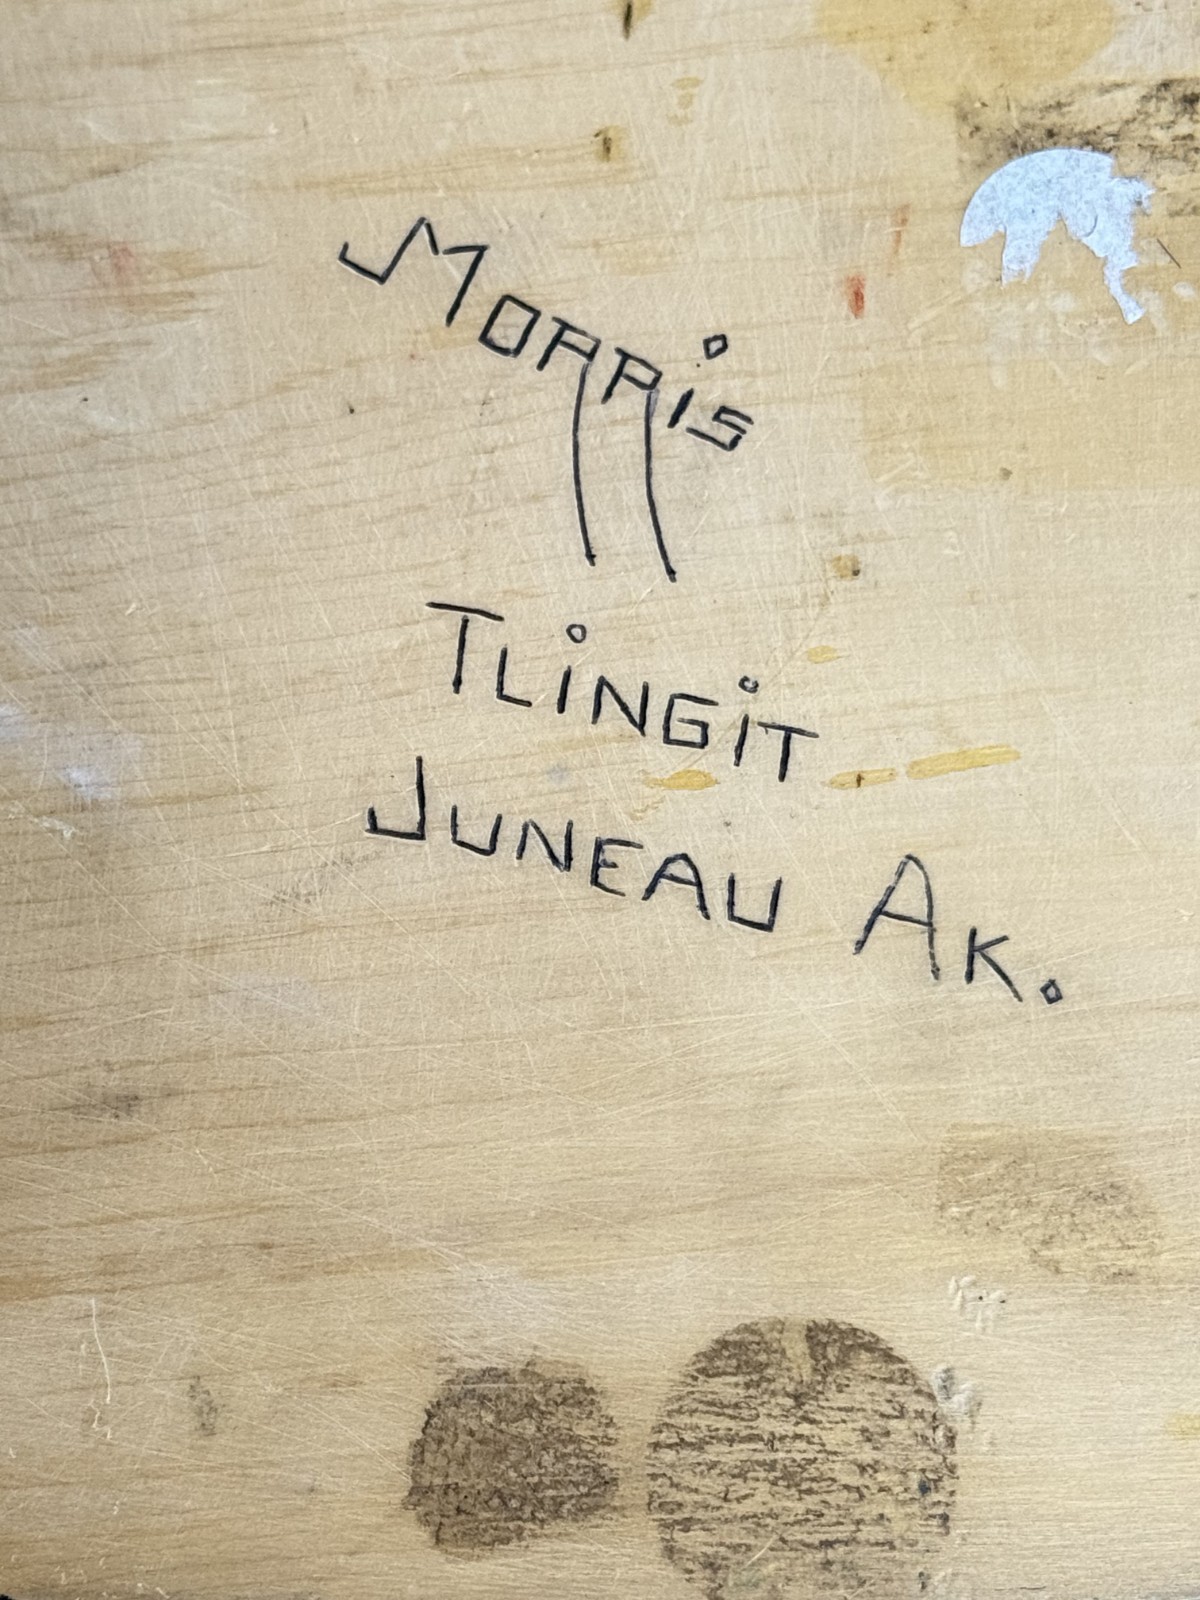 Morris
Tlingit
Juneau Ak.